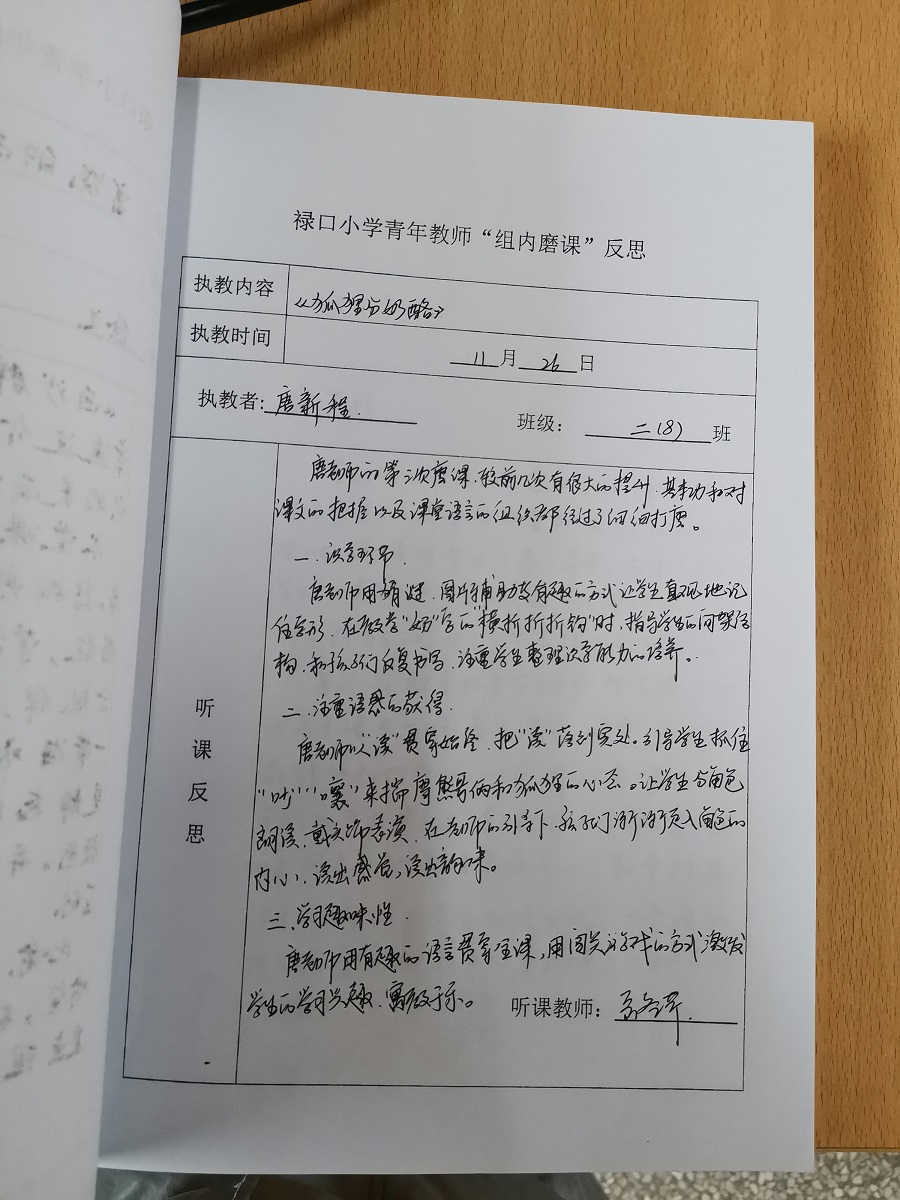 禄口小学青年教师“组内磨课”反思
执教内容 《狐狸分奶酪》
执教时间 11月26日
执教者：唐新程 班级：二(8)班
听课反思
唐老师的第三次磨课，较前几次有很大的提升，基本功和对
课文的把握以及课堂语言的组织都经过了仔细打磨。
一、识字环节
唐老师用猜谜、图片辅助及有趣的方式让学生直观地记
住字形，在教学“奶”字的“横折折折钩”时，指导学生的间架结
构，和孩子们反复书写，注重学生整理识字能力的培养。
二、注重语感的获得
唐老师以“读”贯穿始终，把“读”落到实处。引导学生抓住
“吵”“嚷”来揣摩熊哥俩和狐狸的心态。让学生分角色
朗读，戴头饰表演，在老师的引导下，孩子们渐渐走入角色的
内心，读出感觉，读出韵味。
三、学习趣味性
唐老师用有趣的语言贯穿全课，用闯关游戏的方式激发
学生的学习兴趣，寓教于乐。 听课教师：